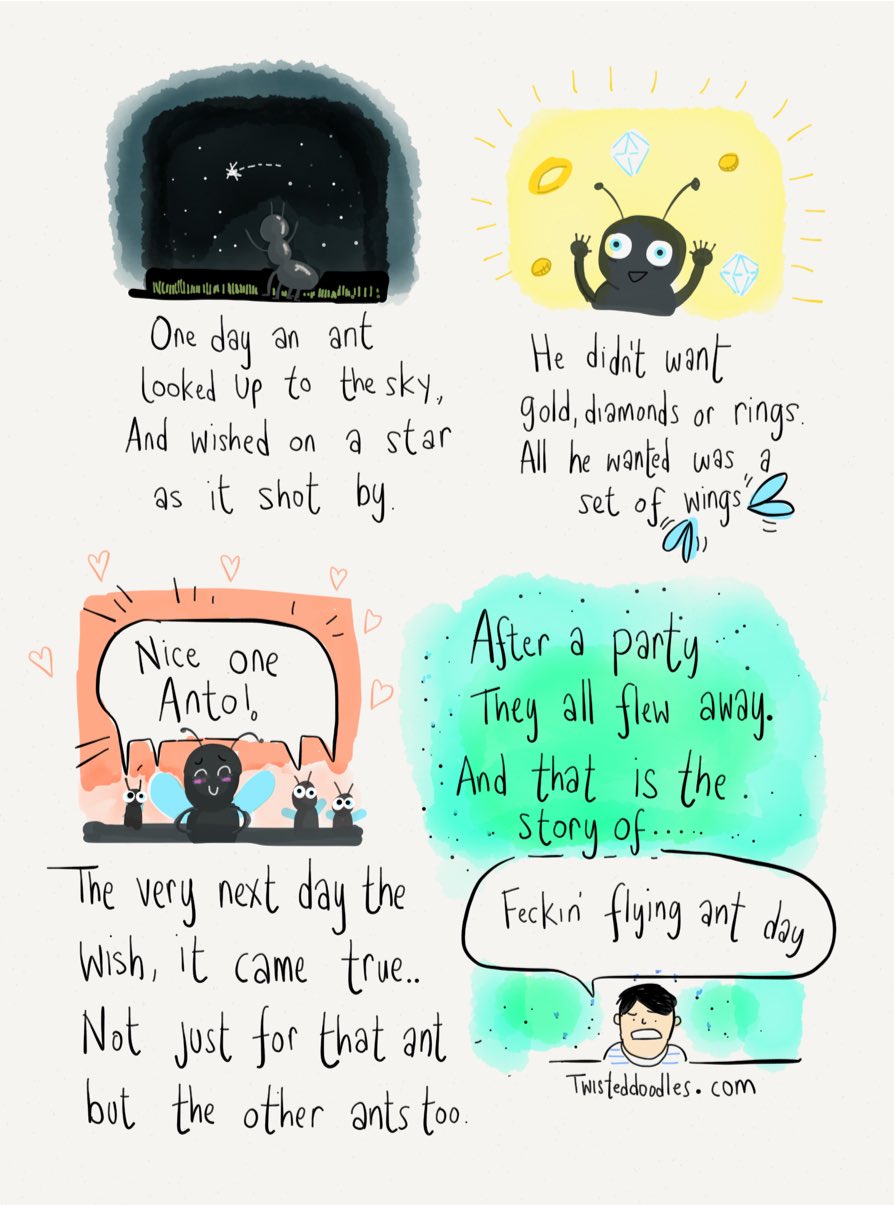 One day an ant
looked up to the sky,
And wished on a star
as it shot by.
He didn't want
gold, diamonds or rings.
All he wanted was a
set of wings
Nice one
Anto!
The very next day the
wish, it came true..
Not just for that ant
but the other ants too.
After a party
They all flew away.
And that is the
story of.....
Feckin' flying ant day
Twisteddoodles.com